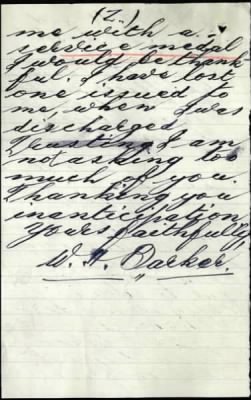 (2.)
me with a
service medal
I would be thank
ful. I have lost
one issued to
me, when I was
discharged.
Trusting I am
not asking too
much of you.
Thanking you
in anticipation,
Yours faithfully
W. H. Barker.